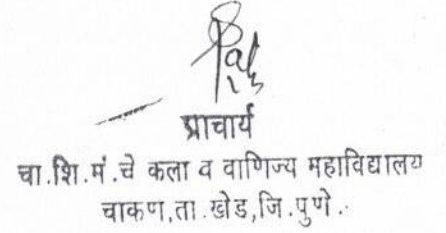 प्राचार्य
चा.शि.मं.चे कला व वाणिज्य महाविद्यालय
चाकण,ता.खेड,जि.पुणे.